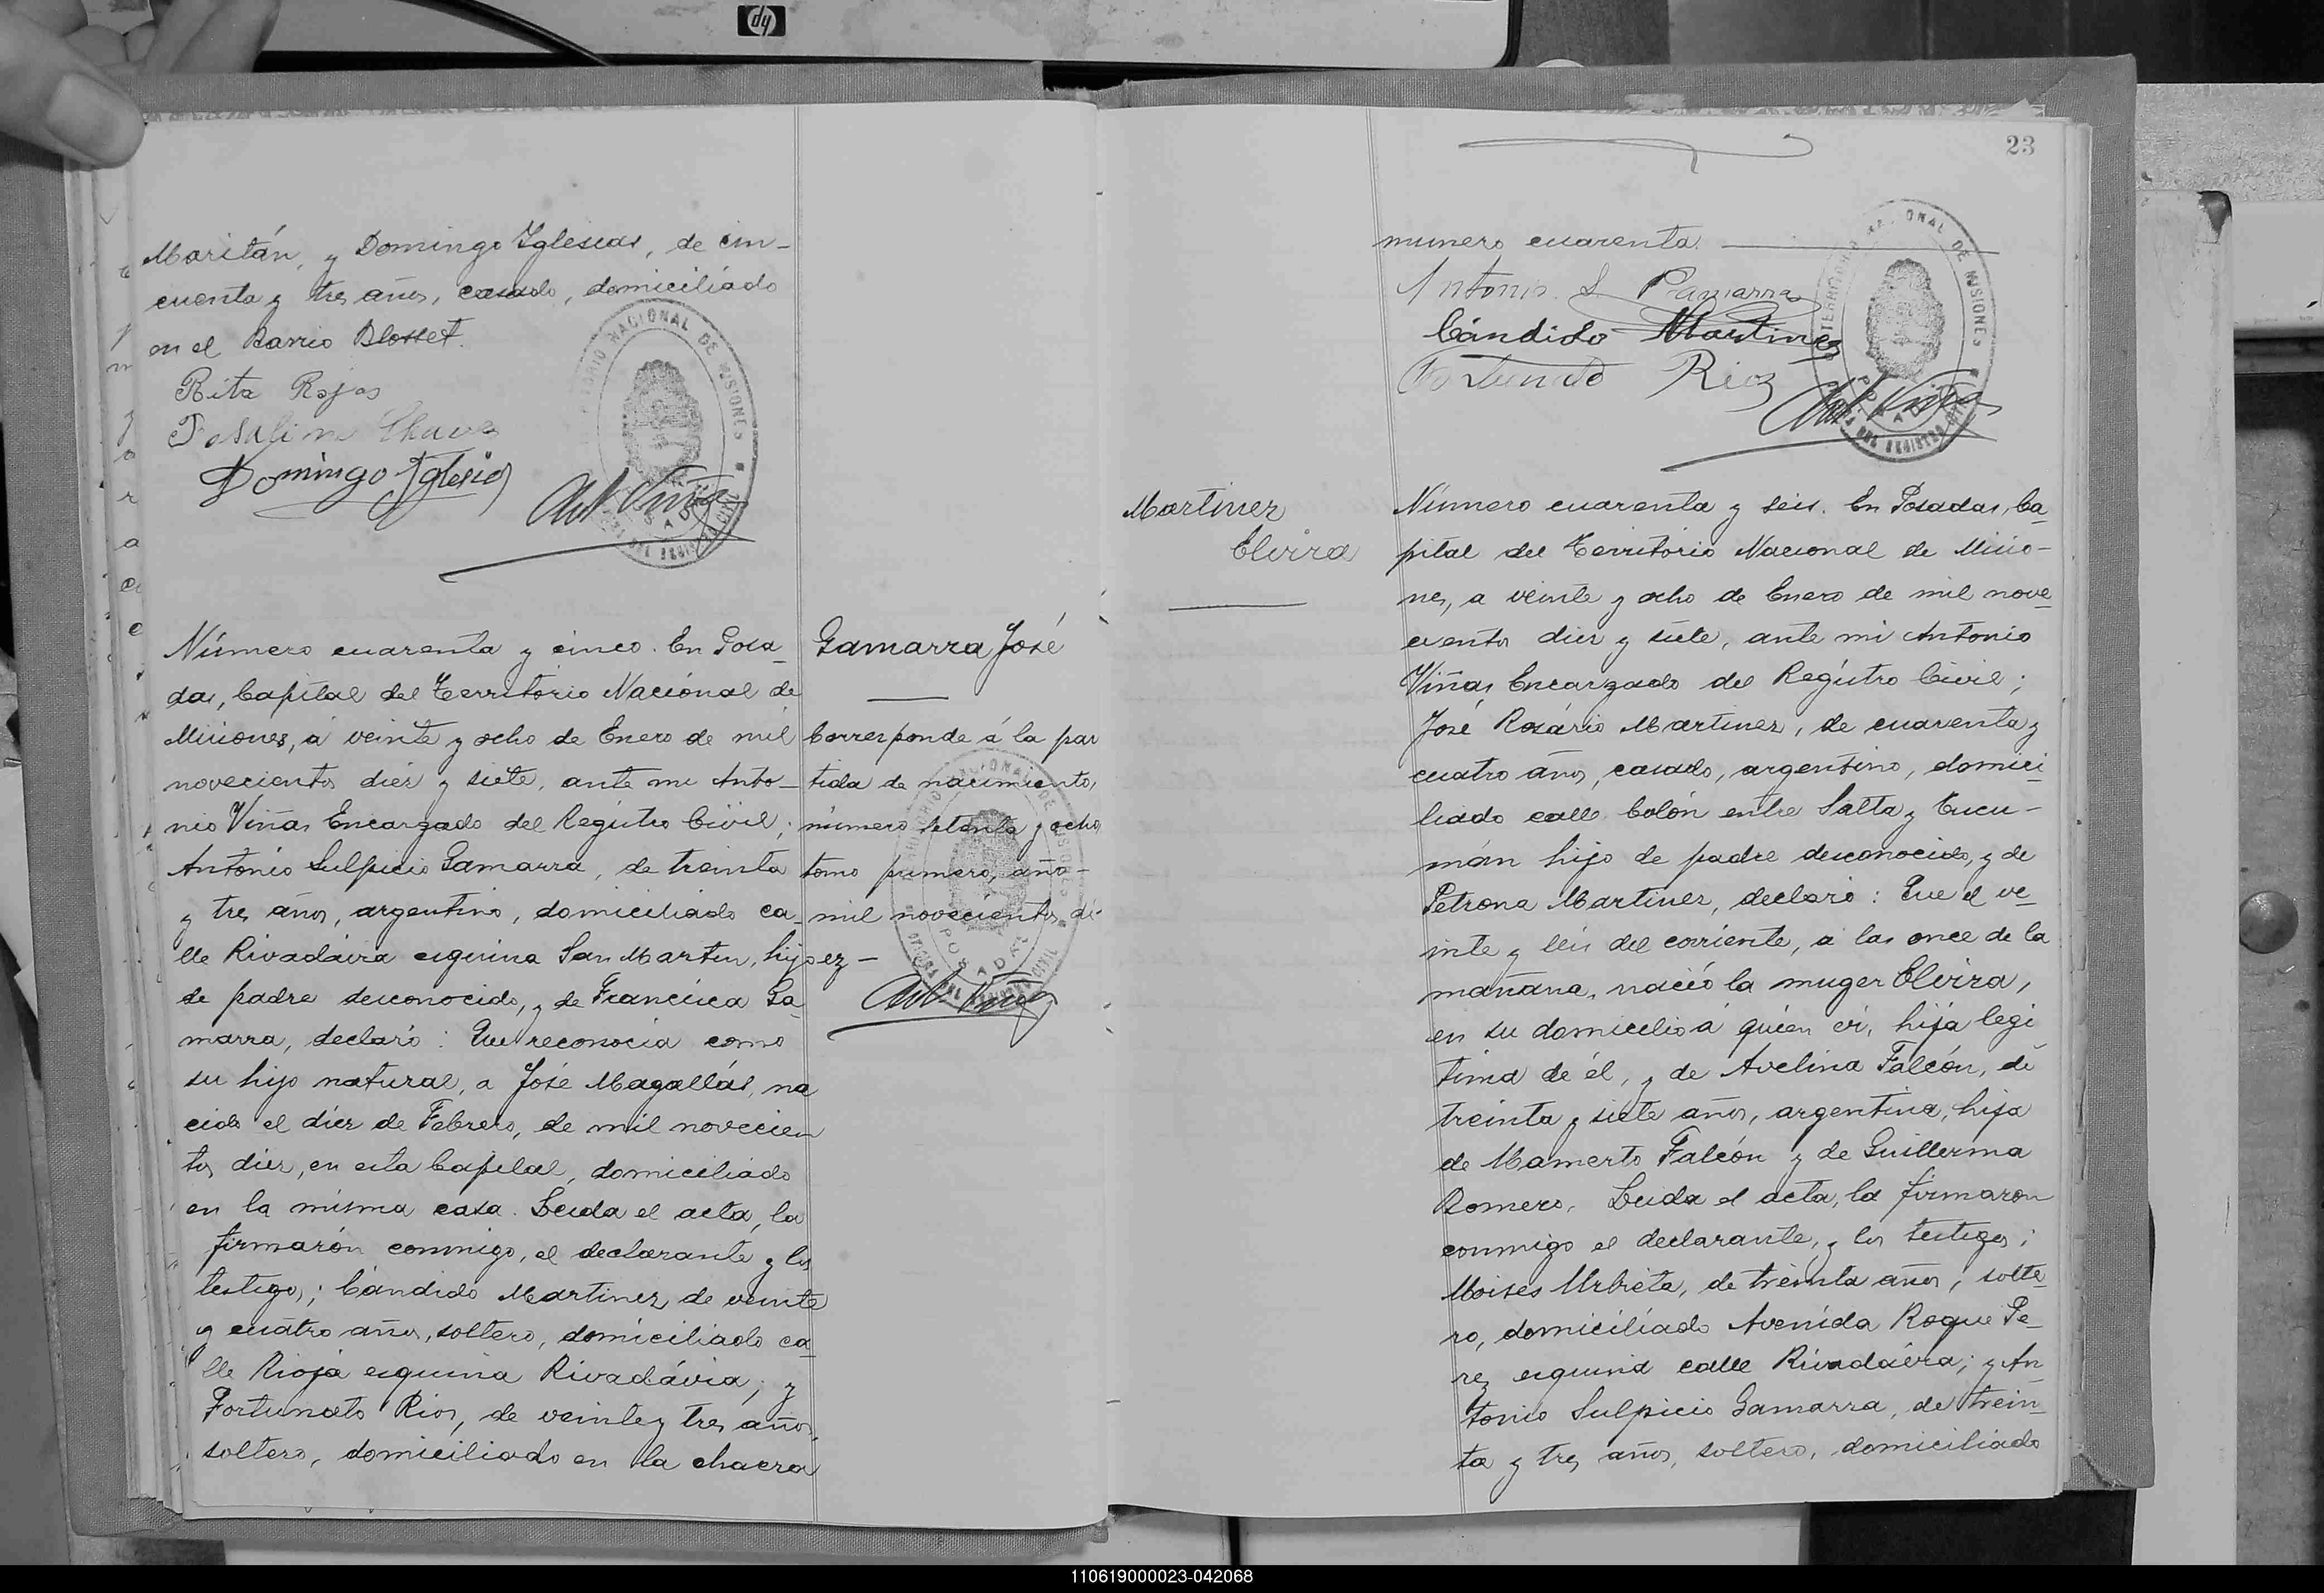 hp
Maritán, y Domingo Yglesias, de cin-
cuenta y tres años, casado, domiciliado
en el Barrio Blosset.
Rita Rojas
Chaves
Domingo Yglesias
Ant Viñas
TERRITORIO NACIONAL DE MISIONES
POSADAS
OFICINA DEL REGISTRO CIVIL
Número cuarenta y cinco. En Posa-
das, Capital del Territorio Nacional de
Misiones, á veinte y ocho de Enero de mil
novecientos diez y siete, ante mi Anto-
nio Viñas Encargado del Registro Civil;
Antonio Sulpicio Gamarra, de treinta
y tres años, argentino, domiciliado ca-
lle Rivadávia esquina San Martin, hijo
de padre desconocido, y de Francisca Ga-
marra, declaró: Que reconocia como
su hijo natural, a José Magallás, na
cido el diez de Febrero, de mil novecien
tos diez, en esta Capital, domiciliado
en la misma casa. Leida el acta, la
firmarón conmigo, el declarante y los
testigos; Cándido Martinez, de veinte
y cuatro años, soltero, domiciliado ca-
lle Rioja esquina Rivadávia; y
Fortunato Rios, de veinte y tres años,
soltero, domiciliado en la chacra
Gamarra José
Corresponde á la par
tida de nacimiento,
número setenta y ocho
tomo primero, año-
mil novecientos di-
ez -
Ant. Viñas
TERRITORIO NACIONAL DE MISIONES
POSADAS
OFICINA DEL REGISTRO CIVIL
23
numero cuarenta.
Antonio S Gamarra
Cándido Martinez
Fortunato Rios
Ant Viñas
TERRITORIO NACIONAL DE MISIONES
POSADAS
OFICINA DEL REGISTRO CIVIL
Martinez
Elvira
Número cuarenta y seis. En Posadas, Ca-
pital del Territorio Nacional de Misio-
nes, a veinte y ocho de Enero de mil nove-
cientos diez y siete, ante mi Antonio
Viñas Encargado del Registro Civil;
José Rosário Martinez, de cuarenta y
cuatro años, casado, argentino, domici-
liado calle Colón entre Salta y Tucu-
mán hijo de padre desconocido, y de
Petrona Martinez, declaró: Que el ve-
inte y seis del corriente, a las once de la
mañana, nació la muger Elvira,
en su domicilio á quien vi, hija legi
tima de él, y de Avelina Falcón, de
treinta y siete años, argentina, hija
de Mamerto Falcón y de Guillerma
Romero. Leida el acta, la firmaron
conmigo el declarante, y los testigos;
Moises Urbieta, de treinta años, solte-
ro, domiciliado Avenida Roque Pe-
rez esquina calle Rivadávia; y An-
tonio Sulpicio Gamarra, de trein-
ta y tres años, soltero, domiciliado
110619000023-042068